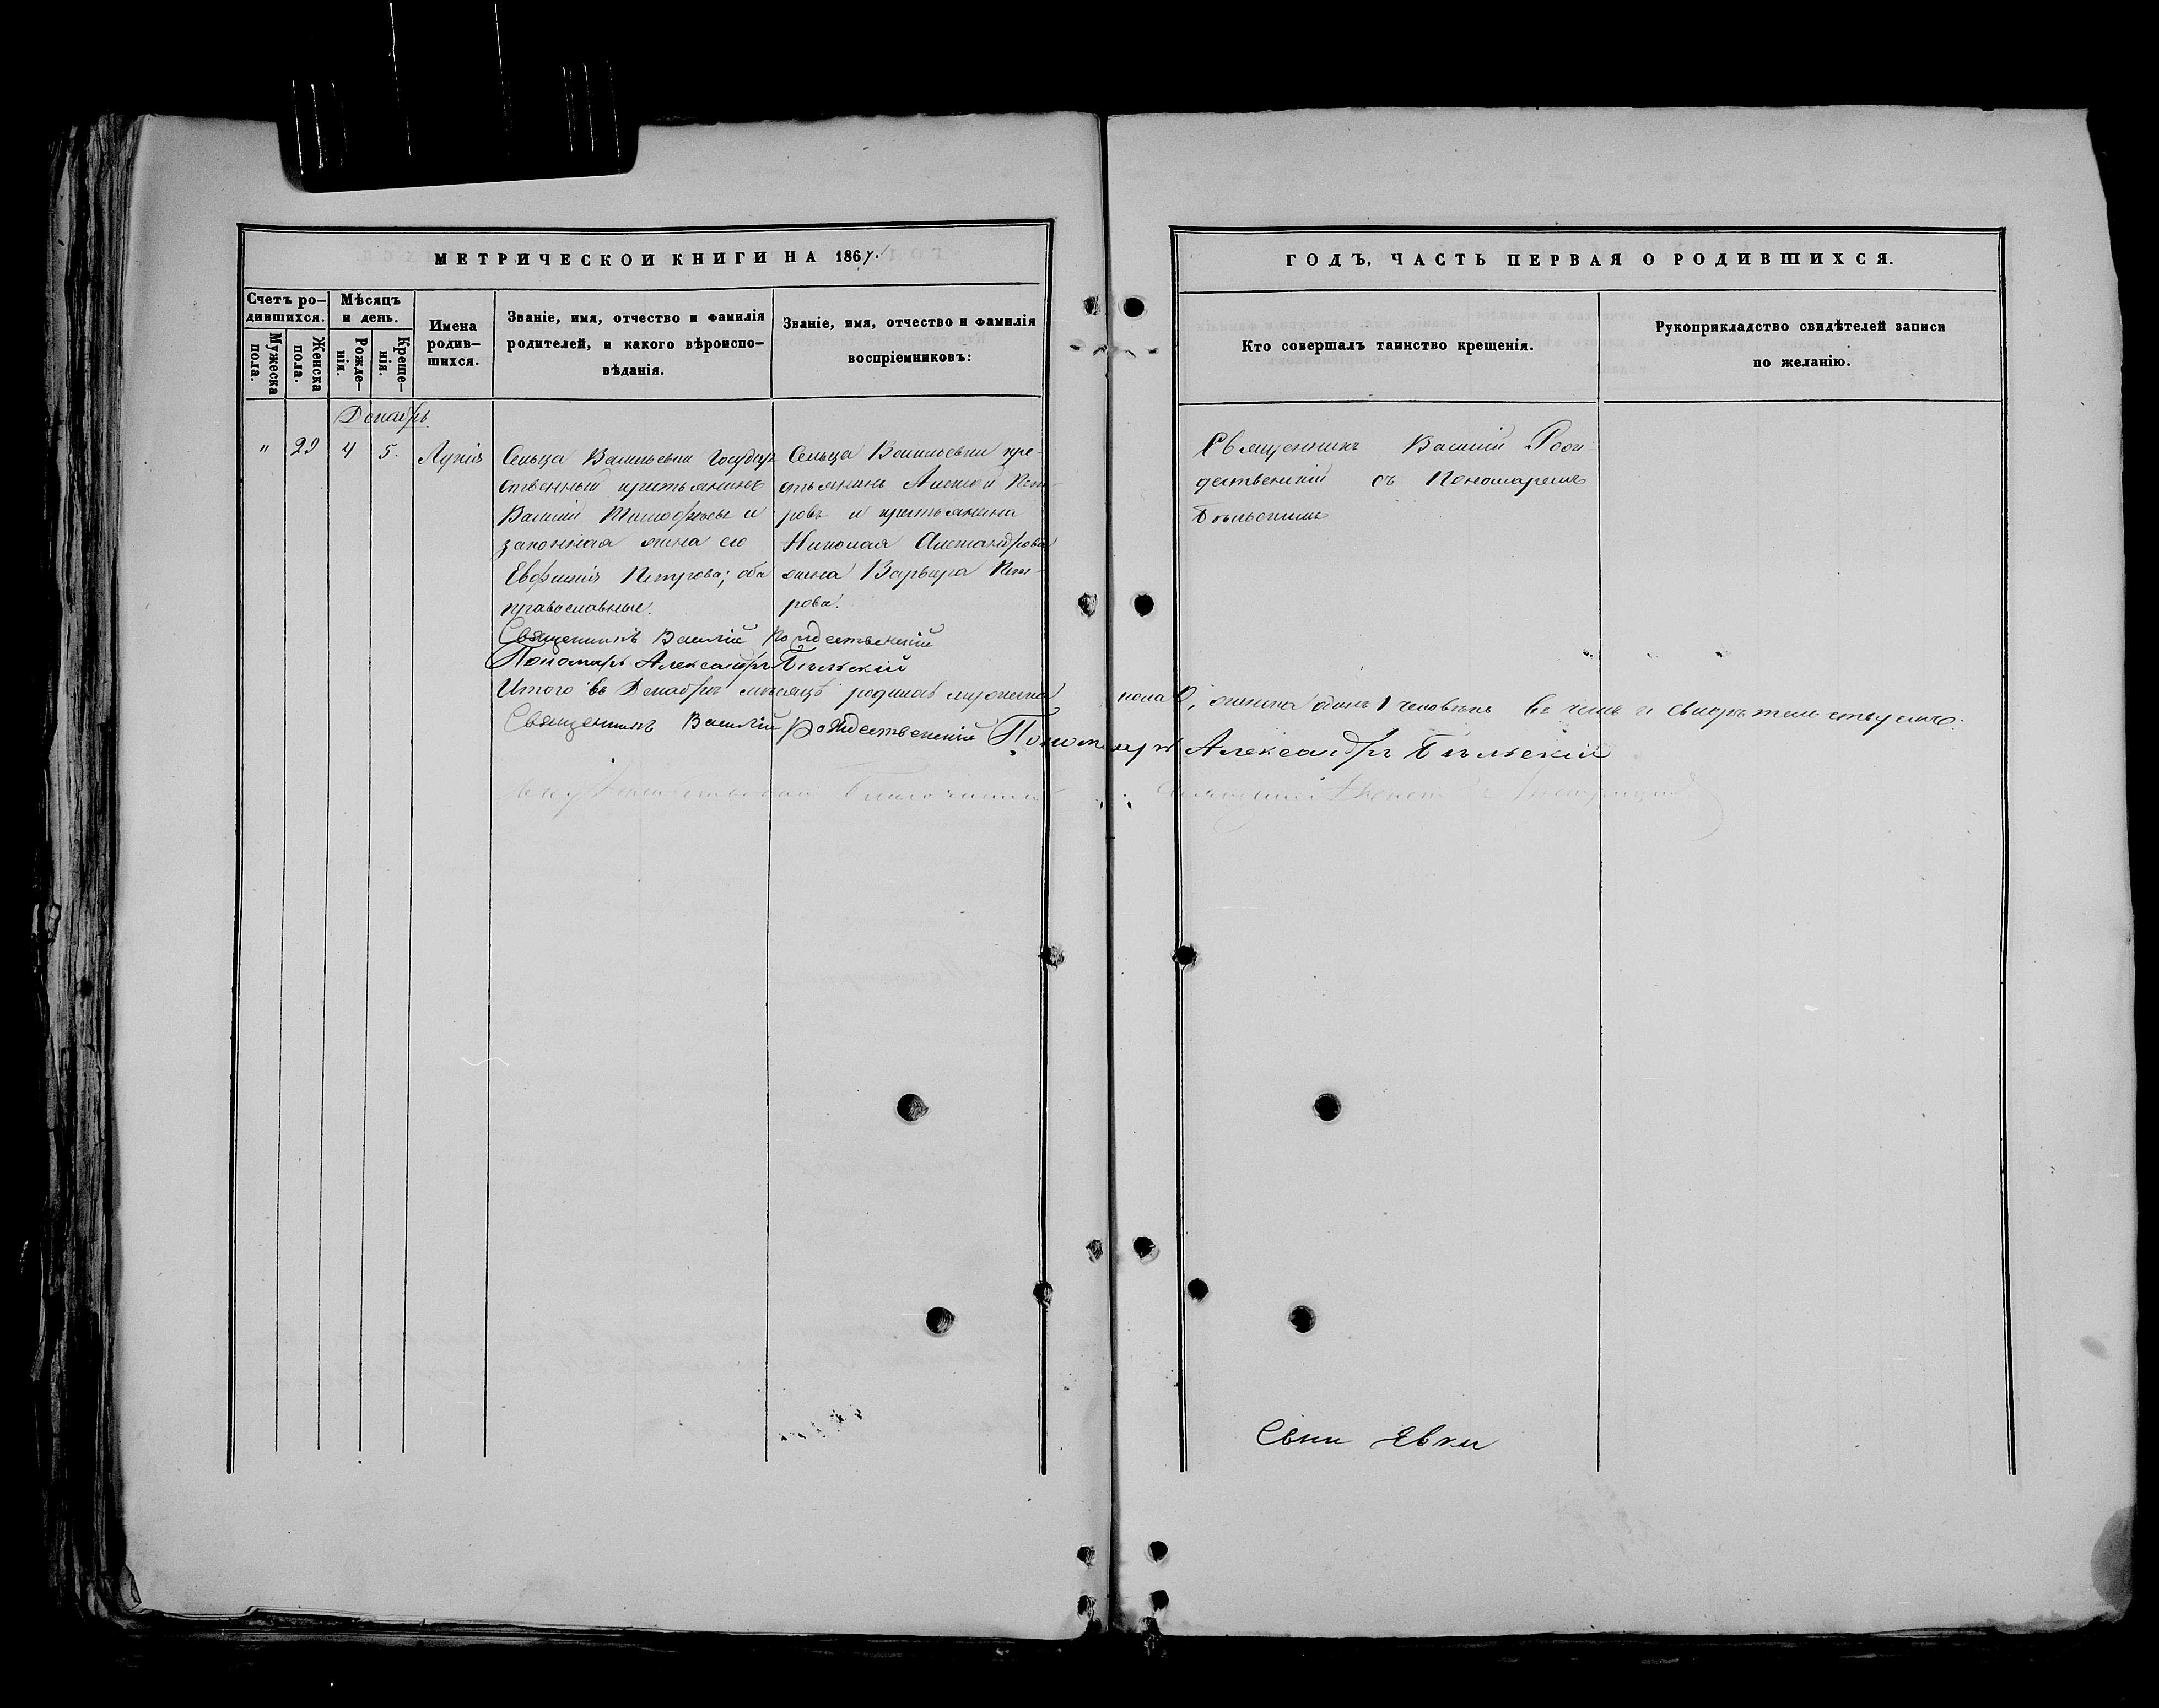 МЕТРИЧЕСКОЙ КНИГИ НА 1867.
ГОДЪ, ЧАСТЬ ПЕРВАЯ О РОДИВШИХСЯ.
Счетъ родившихся.
Мужеска пола.
Женска пола.
Мѣсяцъ и день.
Рожденія.
Крещенія.
Имена родившихся.
Званіе, имя, отчество и фамилія
родителей, и какого вѣроиспо-
вѣданія.
Званіе, имя, отчество и фамилія
воспріемниковъ:
Кто совершалъ таинство крещенія.
Рукоприкладство свидѣтелей записи
по желанію.
Декабрь
" 29 4 5. Лукія
Сельца Васильевки Государ
ственный крестьянинъ
Василій Тимофѣевъ и
законная жена его
Евфимія Петрова; оба
православные.
Сельца Васильевки кре-
стьянинъ Алексѣй Пет-
ровъ и крестьянина
Николая Александрова
жена Варвара Пет-
рова.
Священникъ Василій Рож-
дественскій съ Пономаремъ
Бѣльскимъ
Священникъ Василій Рождественскій
Пономарь Александръ Бѣльскій
Итого въ Декабрѣ мѣсяцѣ родилось мужеска пола 0, женска одинъ 1 человѣкъ въ чемъ и свидѣтельствуемъ.
Священникъ Василій Рождественскій Пономарь Александръ Бѣльскій